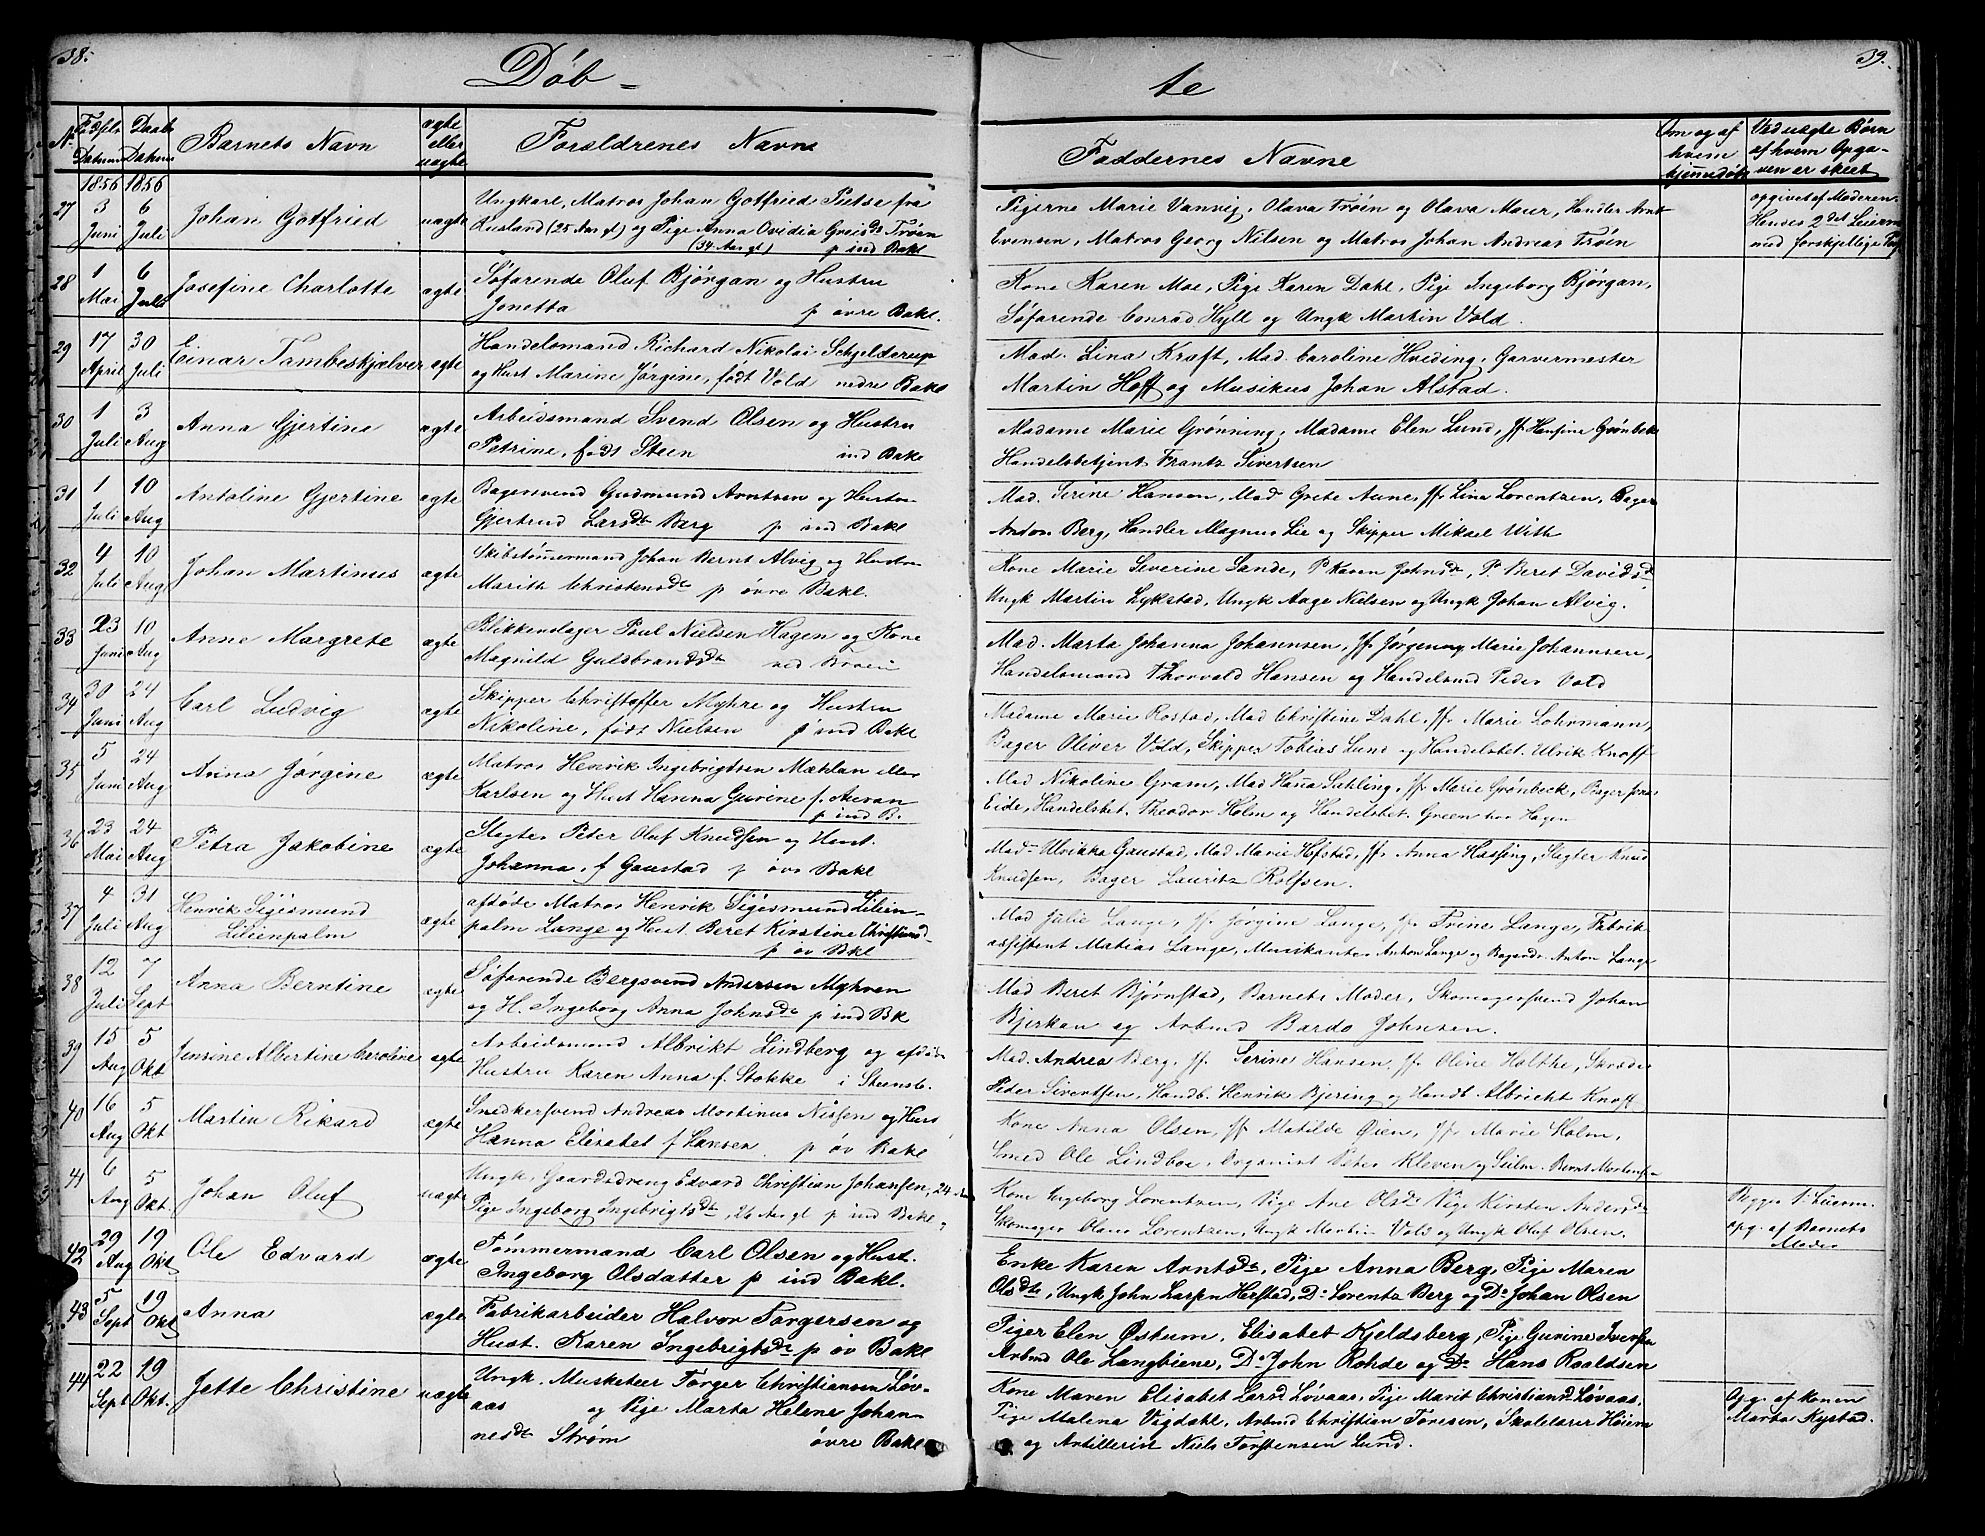 38.
39.
Døb-
te
No
Fødsels Datum
Daabs Datum
Barnets Navn
ægte eller uægte
Forældrenes Navne
Faddernes Navne
Om og af hvem hjemmedøbt
Ved uægte Børn af hvem Opga-
ven er skeet
1856 1856
27 3 Juni 6 Juli Johan Gotfried uægte
Ungkarl, Matros Johan Gotfried Pietse fra
Rusland (25 Aar gl) og Pige Anna Ovidia Greisdt Trøen
(34 Aar gl) p ind Bakl
Pigerne Marie Vanvig, Olava Trøen og Olava Maier, Handler Arnt
Evensen, Matros Georg Nilsen og Matros Johan Andreas Trøen
opgivet af Moderen.
Hendes 2det Leierm
med forskjellige
28 1 Mai 6 Juli Josefine Charlotte ægte
Søfarende Oluf Bjørgan og Hustru
Jonetta p øvre Bakl.
Kone Karen Moe, Pige Karen Dahl, Pige Ingeborg Bjørgan,
Søfarende Conrad Hyll og Ungk Martin Vold.
29 17 April 30 Juli Einar Tambeskjælver ægte
Handelsmand Richard Nikolai Schjelderup
og Hust Marine Jørgine, født Vold nedre Bakl
Mad. Lina Kraft, Mad. Caroline Hviding, Garvermester
Martin Hoff og Musikus Johan Alstad.
30 1 Juli 3 Aug Anna Gjertine ægte
Arbeidsmand Svend Olsen og Hustru
Petrine, født Steen ind Bakl
Madame Marie Grønning, Madame Elen Lund, Jf. Hansine Grønbek
Handelsbetjent Frantz Sivertsen
31 1 Juli 10 Aug Antoline Gjertine ægte
Bagersvend Gudmund Arntsen og Hustru
Gjertrud Larsdt Berg p ind Bakl
Mad. Serine Hanson, Mad Grete Aune, Jf. Lina Lorentzen, Bager
Anton Berg, Handler Magnus Lie og Skipper Mikael With
32 4 Juli 10 Aug Johan Martinus ægte
Skibstømmermand Johan Bernt Alvig og Hustru
Marith Christensdt p øvre Bakl.
Kone Marie Severine Sande, P Karen Johnsdt, P. Beret Davidsd
Ungk Martin Lykstad, Ungk Aage Nielsen og Ungk Johan Alvig.
33 23 Juni 10 Aug Anne Margrete ægte
Blikkenslager Poul Nielsen Hagen og Kone
Magnild Guldbrandsdt ved Broen
Mad. Marta Johanna Johannsen, Jf. Jørgen og Marie Johannsen,
Handelsmand Thorvald Hansen og Handelsmd Peder Vold
34 30 Juni 24 Aug Carl Ludvig ægte
Skipper Christoffer Myhre og Hustru
Nikoline, født Nielsen p ind Bakl
Madame Marie Rostad, Mad Christine Dahl, Jf. Marie Lohrmann,
Bager Oliver Vold, Skipper Tobias Lund og Handelsbet. Ulrik Knoff
35 5 Juni 24 Aug Anna Jørgine ægte
Matros Henrik Ingebrigtsen Mæhlan eller
Karlsen og Hust Hanna Gurine f. Auran
p ind B.
Mad Nikoline Gram, Mad Hana Sahling, Jf. Marie Grønbeck, Bager Jonas
Eide, Handelsbet. Theodor Holm og Handelsbet. Green hos Hagen
36 23 Mai 24 Aug Petra Jakobine ægte
Slagter Peter Oluf Knudsen og Hust.
Johanna, f Gaustad p øvr Bakl
Mad. Ulrikka Gaustad, Mad Marie Hofstad, Jf. Anna Hassing, Slagter Knud
Knudsen, Bager Lauritz Rolfsen.
37 4 Juli 31 Aug Henrik Sigismund
Lilienpalm ægte
afdøde Matros Henrik Sigismund Lilien-
palm Lange og Hust. Beret Kirstine Christiansd.
p øv Bakl
Mad Julie Lange, Jf. Jørgine Lange, Jf. Trine Lange, Fabrik
assistent Matias Lange, Musikanter Anton Lange og Bagersv. Anton Lange
38 12 Juli 7 Sept Anna Berntine ægte
Søfarende Bergsvend Andersen Myhren
og H. Ingeborg Anna Johnsdt p ind Bk
Mad Beret Bjørnstad, Barnets Moder, Skomagersvend Johan
Bjerkan og Arbmd Bardo Johnsen.
39 15 Aug 5 Okt Jensine Albertine Caroline ægte
Arbeidsmand Albrikt Lindberg og afdøde
Hustru Karen Anna f. Stokke i Steensb.
Mad. Andrea Berg, Jf. Serine Hansen, Jf. Oline Holthe, Skræder
Peder Sivertsen, Handb. Henrik Bjering og Handb Albricht Knoff
40 16 Aug 5 Okt Martin Rikard ægte
Snedkersvend Andreas Martinus Nissen og Hust
Hanna Elisabet f Hansen. p øv Bakl
Kone Anna Olsen, Jf Matilde Øien, Jf. Marie Holm,
Smed Ole Lindboe, Organist Peter Kleven og Seilm. Bernt Mortensen
41 6 Aug 5 Okt. Johan Oluf uægte
Ungk. Gaardsdreng Edvard Christian Johansen, 24 Aar
Pige Ingeborg Ingebrigtsdt, 26 Aar gl p ind Bakl
Kone Ingeborg Lorentzen, Pige Ane Olsdt Pige Kirsten Andersdt
Skomager Olaus Lorentzen, Ungk Martin Vold og Ungk Oluf Olsen.
Begges 1. Leierm.
opg. af Barnets
Moder
42 29 Aug 19 Okt Ole Edvard ægte
Tømmermand Carl Olsen og Hust.
Ingeborg Olsdatter p ind Bakl.
Enke Karen Arntsdt, Pige Anna Berg, Pige Maren
Olsdt, Ungk John Larsen Hofstad, Do Lorentz Berg og Do Johan Olsen
43 5 Sept 19 Okt Anna ægte
Fabrikarbeider Halvor Torgersen og
Hust. Karen Ingebrigtsdt p øv Bakl
Piger Elen Østum, Elisabet Kjeldsberg, Pige Gurine Iversen
Arbmd Ole Langbiene, Do John Rohde og Do Hans Roaldsen
44 22 Sept 19 Okt. Jette Christine uægte
Ungk. Musketeer Torger Christiansen Løv-
aas og Pige Marta Helene Johan-
nesdt Strøm øvre Bakl
Kone Maren Elisabet Larsd Løvaas, Pige Marit Christiansd Løvaas,
Pige Malena Vigdahl, Arbmd Christian Toresen, Skolelærer Høiem
og Artillerist Niels Torstensen Lund.
Opg. af Konen
Marta Rystad.